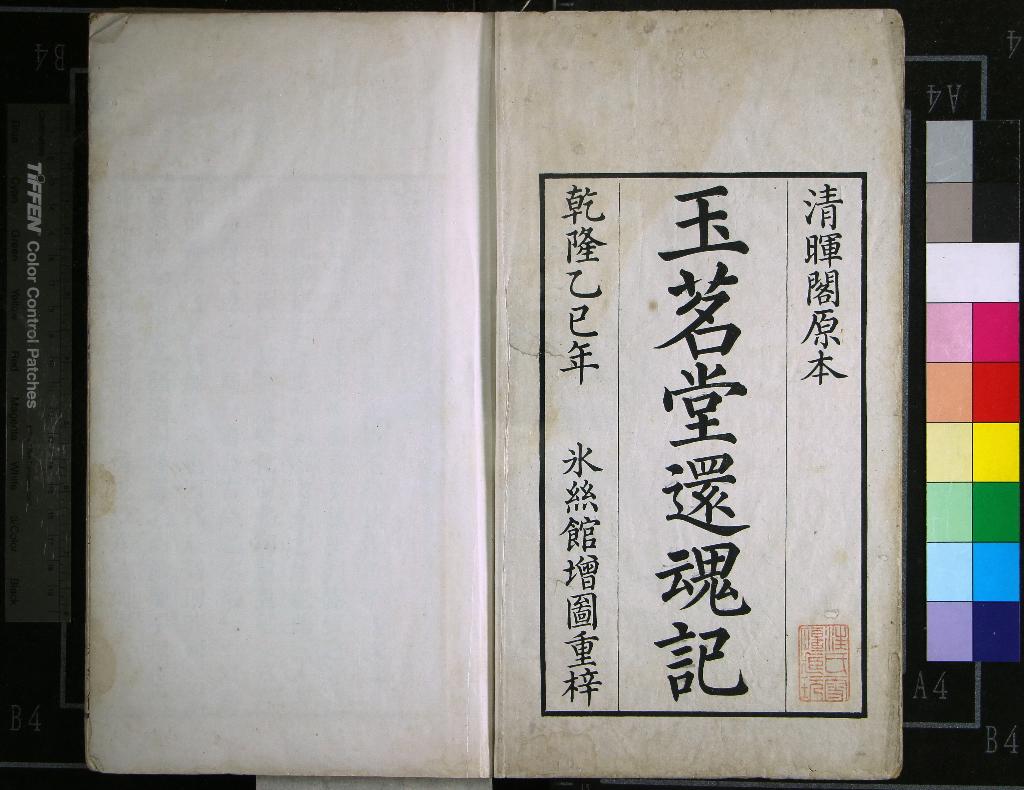 清暉閣原本
玉茗堂還魂記
乾隆乙巳年 氷絲館增圖重梓
TIFFEN Color Control Patches
B4
A4
A4
B4
B4